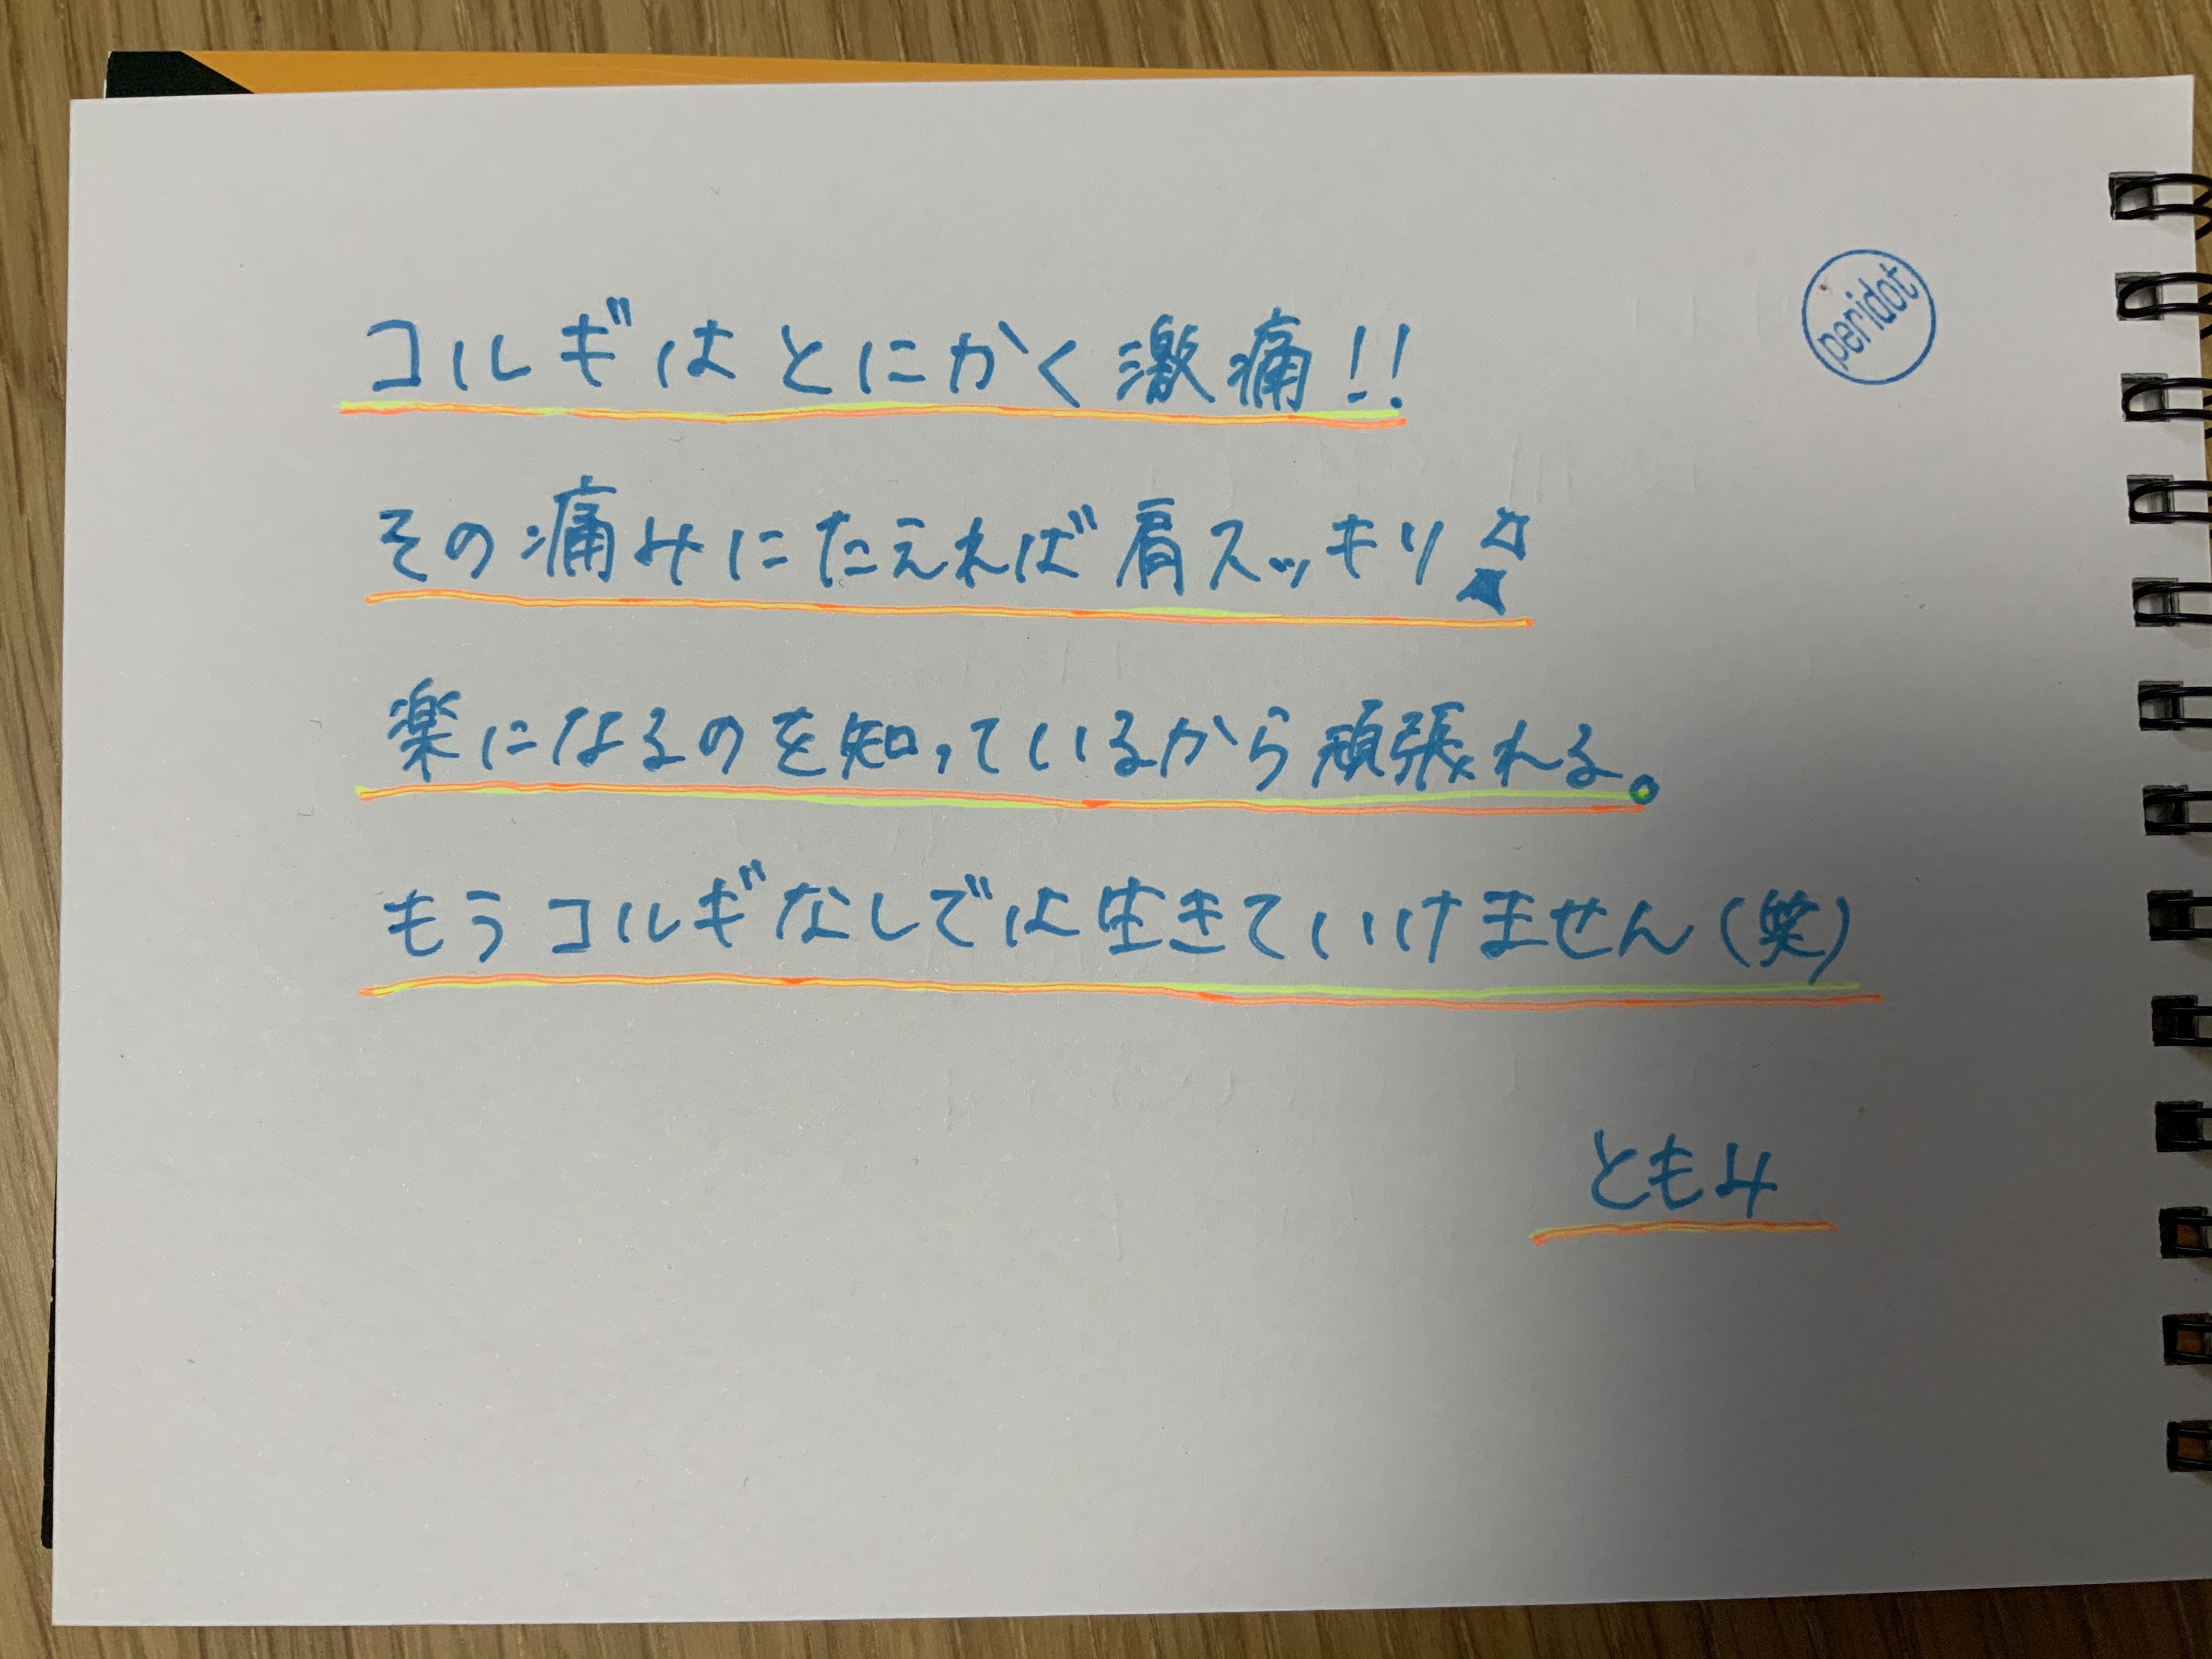 コルギはとにかく激痛!!
peridot
その痛みにたえれば肩スッキリ
楽になるのを知っているから頑張れる。
もうコルギなしでは生きていけません(笑)
ともみ